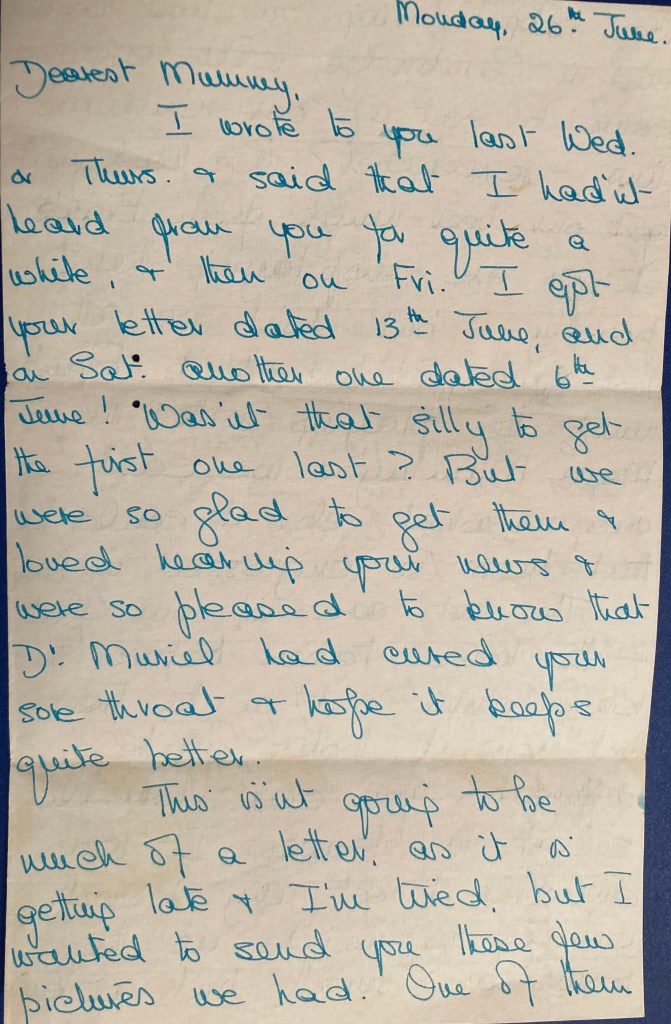 Monday, 26th June.
Dearest Mummy,
I wrote to you last Wed.
or Thurs. & said that I had'nt
heard from you for quite a
while, & then on Fri. I got
your letter dated 13th June, and
on Sat. another one dated 6th
June! Was'nt that silly to get
the first one last? But we
were so glad to get them &
loved hearing your news &
were so pleased to know that
Dr. Muriel had cured your
sore throat & hope it keeps
quite better.
This is'nt going to be
much of a letter, as it is
getting late & I'm tired, but I
wanted to send you these few
pictures we had. One of them